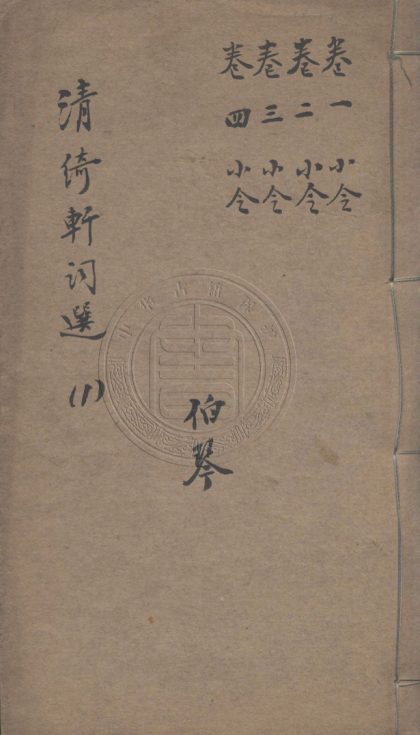 卷一 小令
卷二 小令
卷三 小令
卷四 小令
伯琴
清绮轩词选(1)